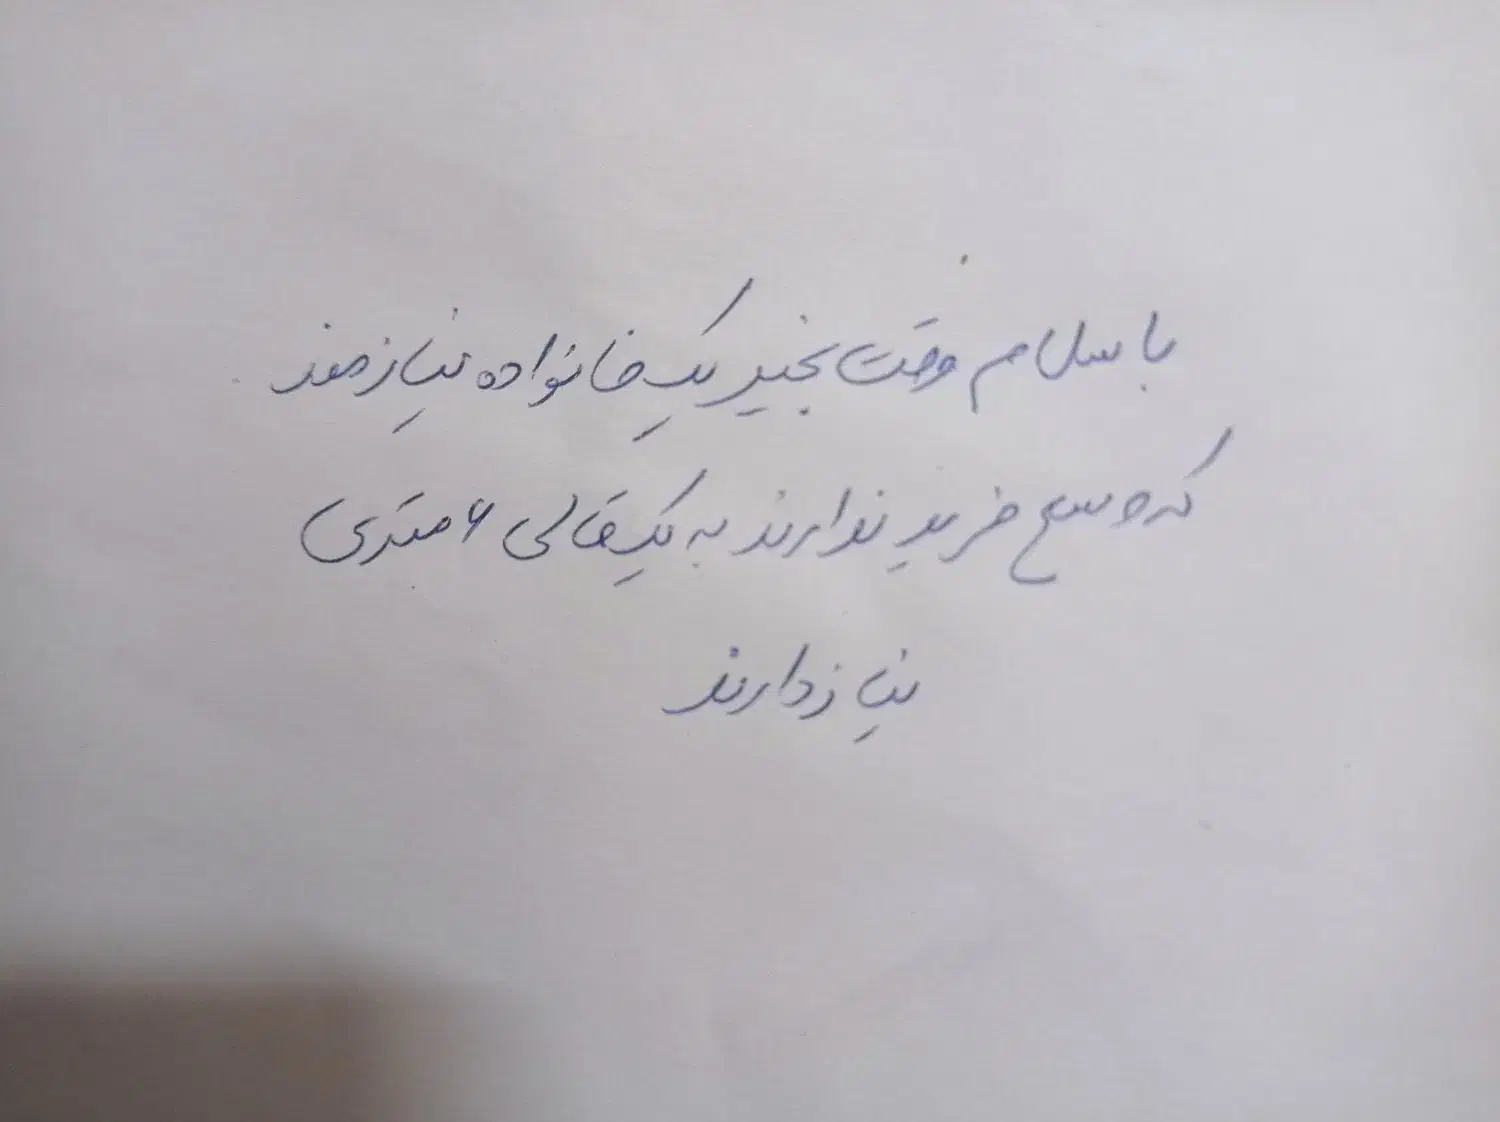 با سلام وقت بخیر یک خانواده نیازمند
که وسع خرید ندارند به یک قالی ۶ متری
نیاز دارند